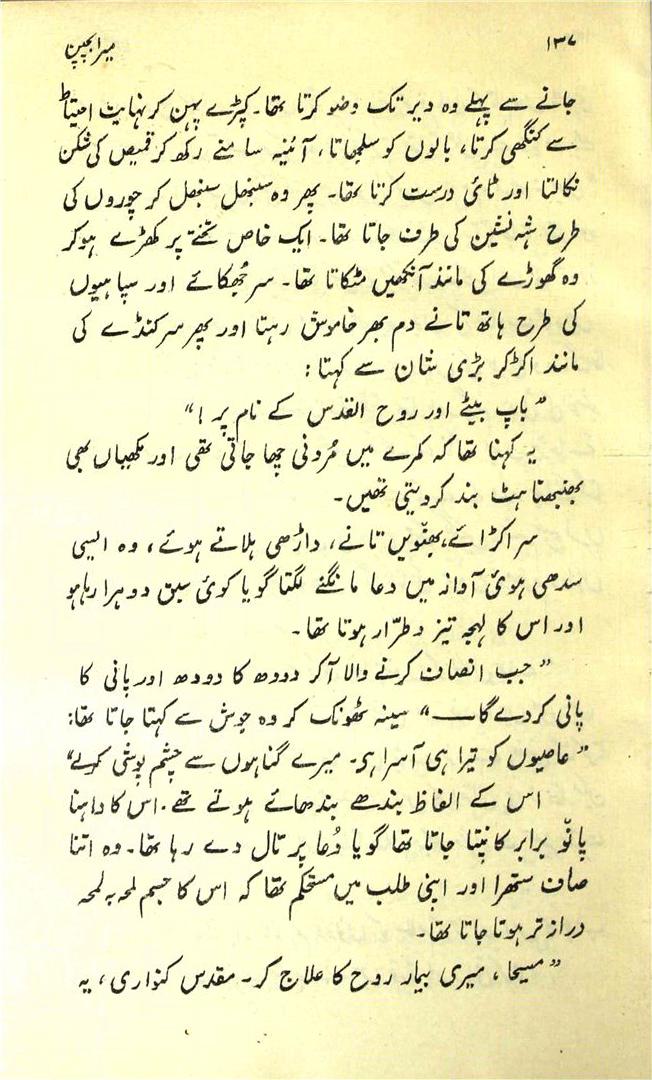 ۱۳۷
میرا بچپن
جانے سے پہلے وہ دیر تک وضو کرتا تھا۔ کپڑے پہن کر نہایت احتیاط
سے کنگھی کرتا، بالوں کو سلجھاتا، آئینہ سامنے رکھ کر قمیص کی شکن
نکالتا اور ٹائی درست کرتا تھا۔ پھر وہ سنبھل سنبھل کر چوروں کی
طرح شہ نشین کی طرف جاتا تھا۔ ایک خاص تختے پر کھڑے ہوکر
وہ گھوڑے کی مانند آنکھیں مٹکاتا تھا۔ سر جُھکائے اور سپاہیوں
کی طرح ہاتھ تانے دم بھر خاموش رہتا اور پھر سرکنڈے کی
مانند اکڑ کر بڑی شان سے کہتا:
"باپ بیٹے اور روح القدس کے نام پر!"
یہ کہنا تھا کہ کمرے میں مُردنی چھا جاتی تھی اور مکھیاں بھی
بھنبھناہٹ بند کر دیتی تھیں۔
سر اکڑائے، بھنّویں تانے، داڑھی ہلاتے ہوئے، وہ ایسی
سدھی ہوئی آواز میں دعا مانگنے لگتا گویا کوئی سبق دوہرا رہا ہو
اور اس کا لہجہ تیز و طرّار ہوتا تھا۔
"جب انصاف کرنے والا آکر دودھ کا دودھ اور پانی کا
پانی کر دے گا——" سینہ ٹھونک کر وہ جوش سے کہتا جاتا تھا:
"عاصیوں کو تیرا ہی آسرا ہی۔ میرے گناہوں سے چشم پوشی کرلے"
اس کے الفاظ بندھے بندھائے ہوتے تھے۔ اس کا داہنا
پانّو برابر کانپتا جاتا تھا گویا دُعا پر تال دے رہا تھا۔ وہ اتنا
صاف ستھرا اور اپنی طلب میں مستحکم تھا کہ اس کا جسم لمحہ بہ لمحہ
دراز تر ہوتا جاتا تھا۔
"مسیحا، میری بیمار روح کا علاج کر۔ مقدس کنواری، یہ